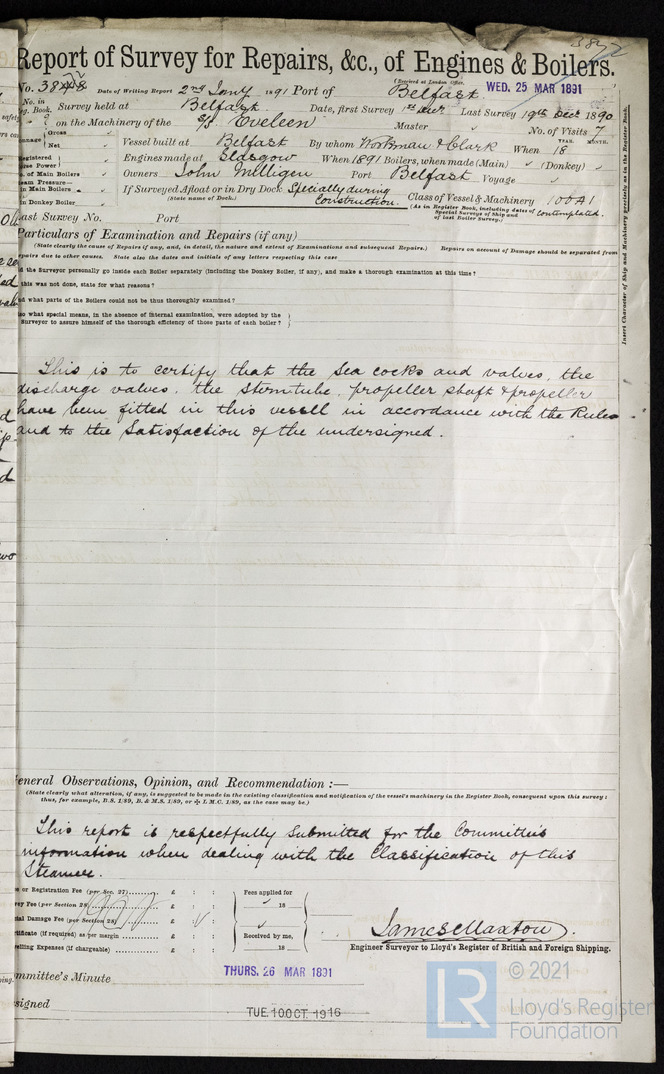 3872
Report of Survey for Repairs, &c., of Engines & Boilers.
(Received at London Office,
No. 38 Date of Writing Report 2nd Jany 1891 Port of Belfast WED. 25 MAR 1891
No. in
Book. Survey held at Belfast Date, first Survey 1st Decr Last Survey 19th Decr 1890
on the Machinery of the S/S. Eveleen Master No. of Visits 7
Gross
Net
Vessel built at Belfast By whom Workman & Clark When 18
YEAR. MONTH.
Registered
Power
Engines made at Glasgow When 1891 Boilers, when made (Main) (Donkey)
of Main Boilers Owners John Milligen Port Belfast Voyage
Steam Pressure
in Main Boilers
in Donkey Boiler
If Surveyed Afloat or in Dry Dock Specially during Construction.
(State name of Dock.)
Class of Vessel & Machinery 100A1 contemplated.
(As in Register Book, including dates of Special Surveys of Ship and of last Boiler Survey.)
Last Survey No. Port
Particulars of Examination and Repairs (if any)
(State clearly the cause of Repairs if any, and, in detail, the nature and extent of Examinations and subsequent Repairs.) Repairs on account of Damage should be separated from
repairs due to other causes. State also the dates and initials of any letters respecting this case
the Surveyor personally go inside each Boiler separately (including the Donkey Boiler, if any), and make a thorough examination at this time?
this was not done, state for what reasons?
what parts of the Boilers could not be thus thoroughly examined?
what special means, in the absence of internal examination, were adopted by the
Surveyor to assure himself of the thorough efficiency of those parts of each boiler?
Insert Character of Ship and Machinery precisely as in the Register Book.
This is to certify that the Sea cocks and valves, the
discharge valves, the Sterntube, propeller shaft & propeller
have been fitted in this vessell in accordance with the Rules
and to the Satisfaction of the undersigned.
General Observations, Opinion, and Recommendation :—
(State clearly what alteration, if any, is suggested to be made in the existing classification and notification of the vessel's machinery in the Register Book, consequent upon this survey:
thus, for example, B.S. 1/89, B. & M.S. 1/89, or ✠ L.M.C. 1/89, as the case may be.)
This report is respectfully submitted for the Committee's
information when dealing with the Classification of this
Steamer.
or Registration Fee (per Sec. 27) £ : :
Fee (per Section 28) £ : :
Damage Fee (per Section 28) £ : :
Certificate (if required) as per margin £ : :
Travelling Expenses (if chargeable) £ : :
Fees applied for
18
Received by me,
18
James Maxton.
Engineer Surveyor to Lloyd's Register of British and Foreign Shipping.
Committee's Minute THURS. 26 MAR 1891
TUE. 10 OCT. 1916
LR
© 2021
Lloyd's Register
Foundation